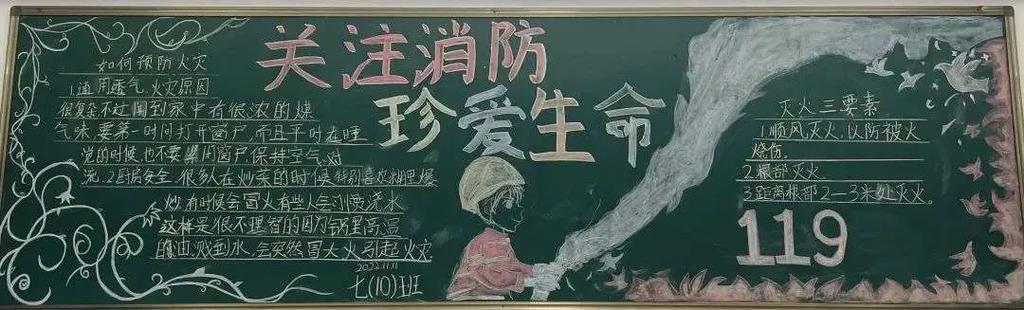 关注消防
珍爱生命
如何预防火灾
1.通用透气,火灾原因
很复杂不过闻到家中有很浓的煤
气味要第一时间打开窗户,而且平时在睡
觉的时候,也不要
窗户,保持空气对
流.2厨房安全,很多人在炒菜的时候特别喜欢
爆
炒有时候会冒火有些人会
浇水
这样是很不理智的因为锅里高温
的油,
到水,会突然冒大火引起火灾
2022.11.11
七(10)班
灭火三要素
1.顺风灭火,以防被火
烧伤。
2.根部灭火.
3.距离根部2—3米处灭火。
119